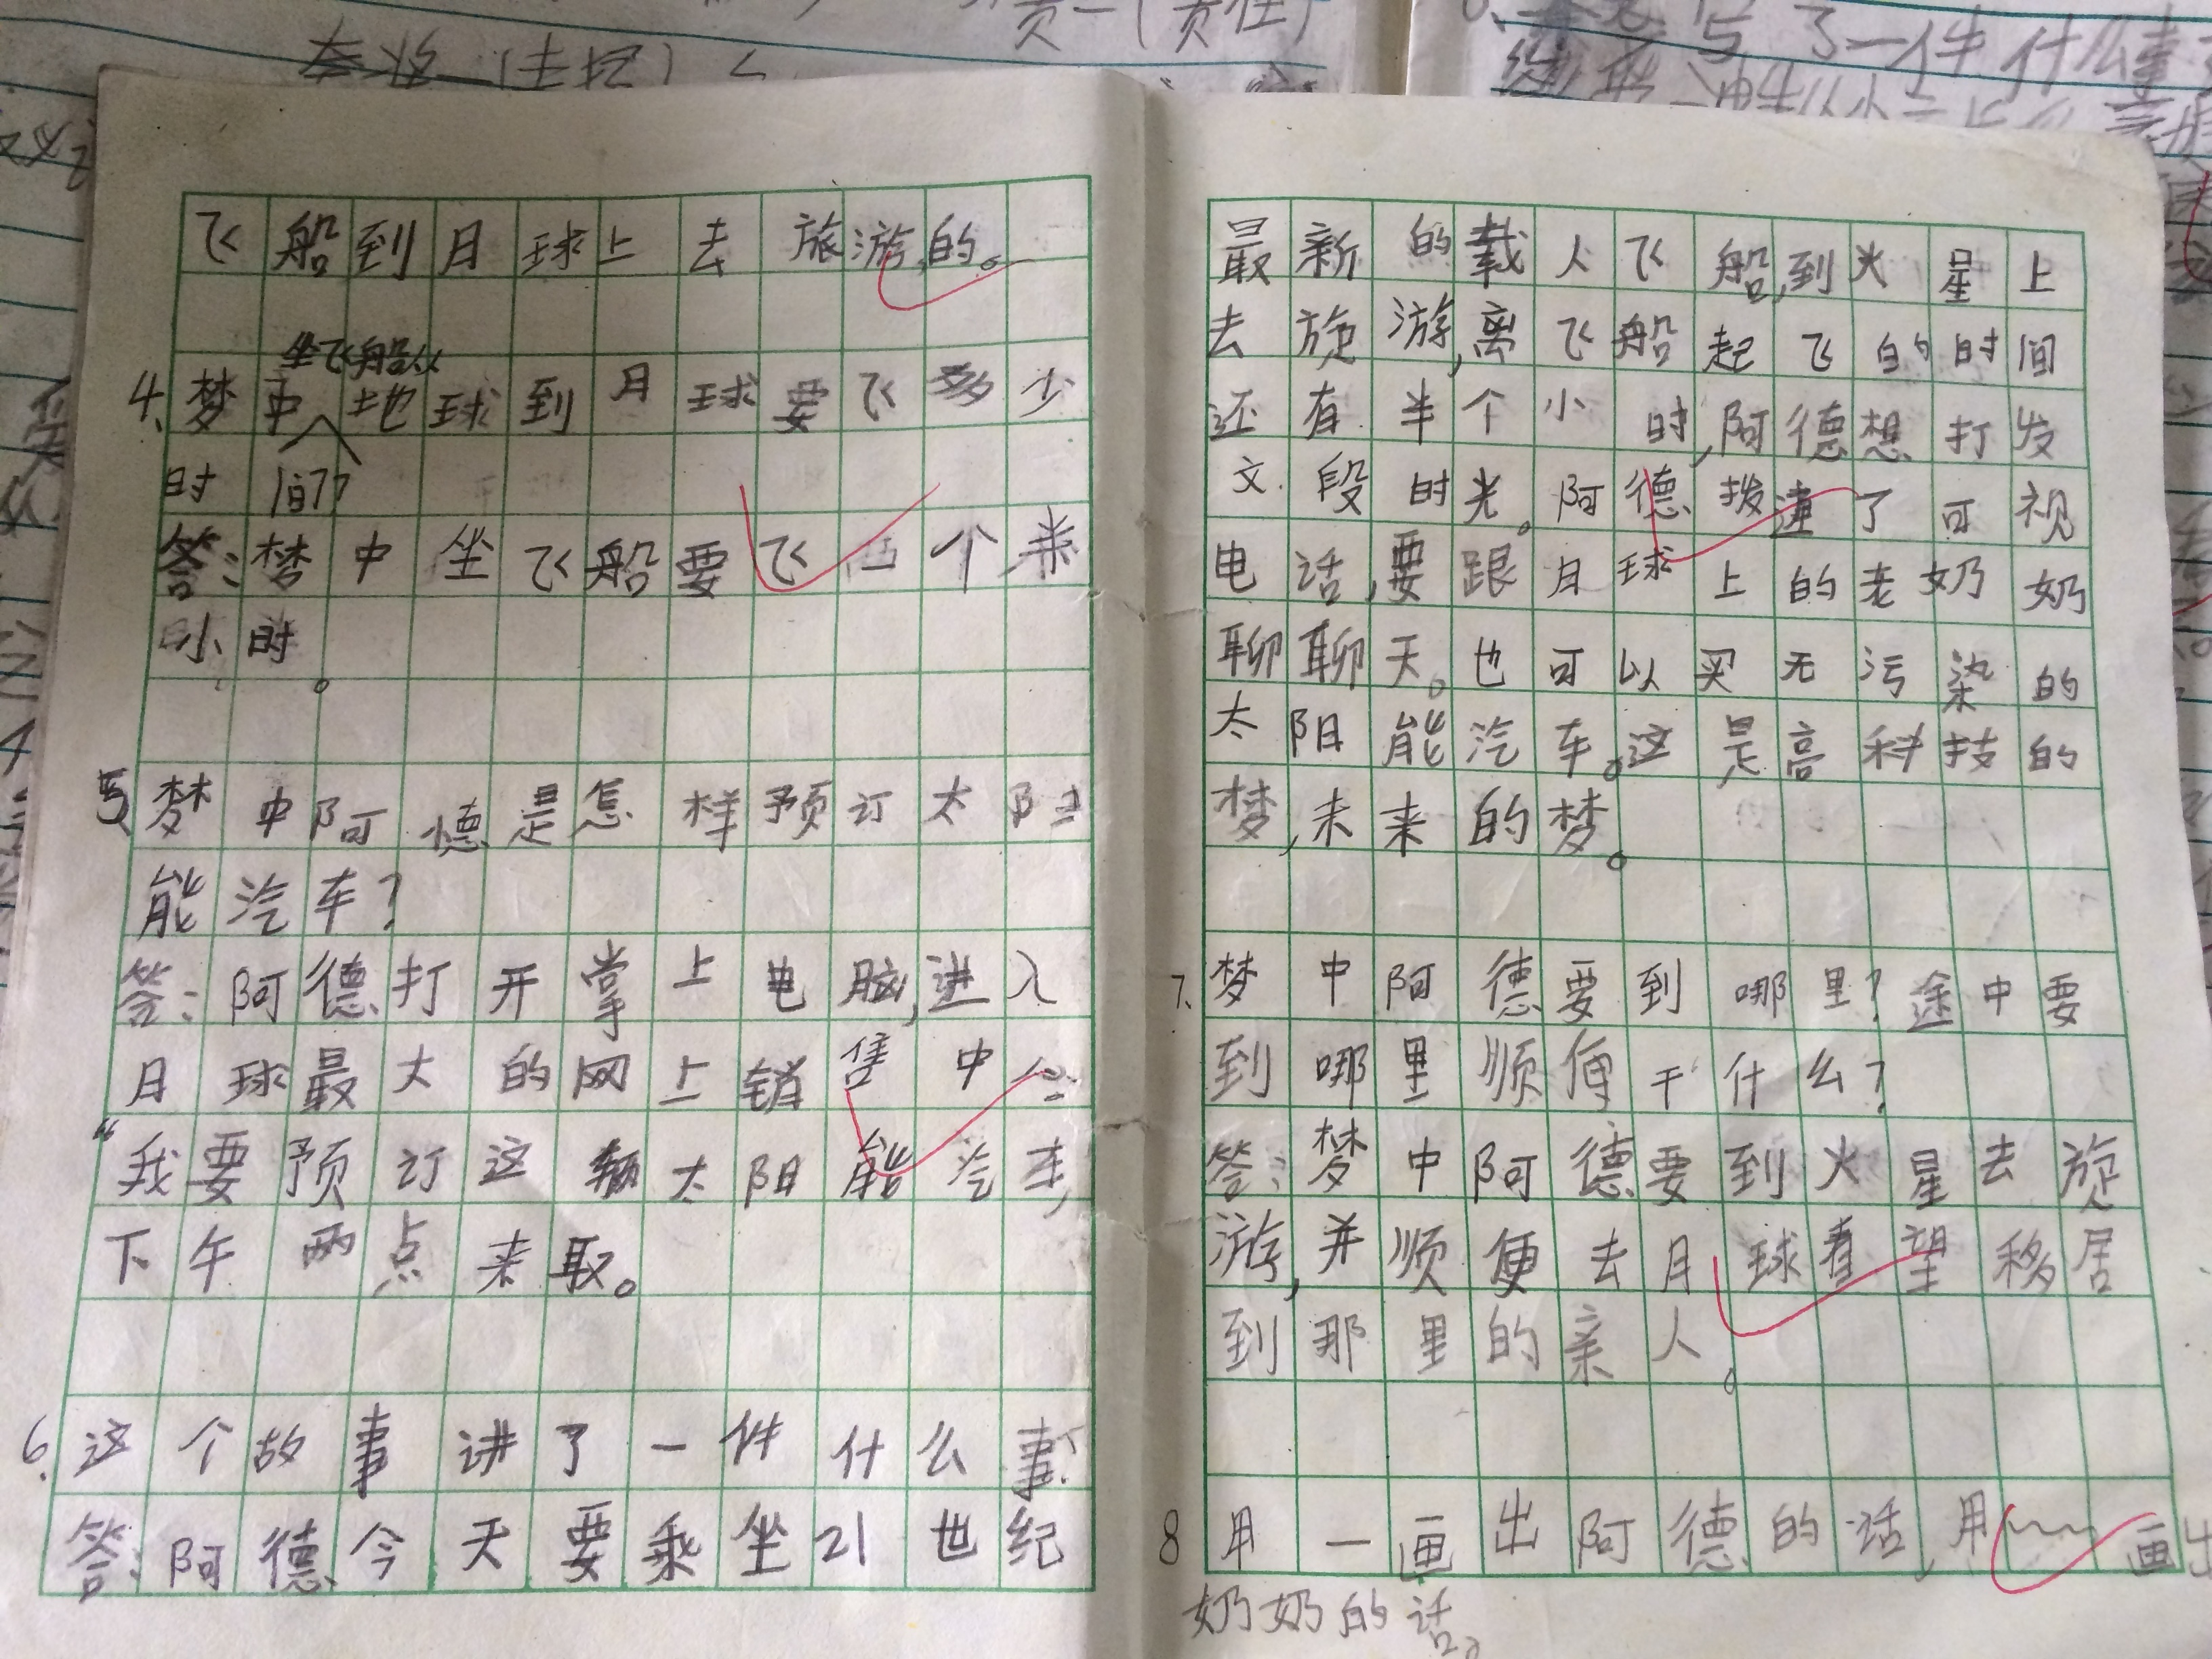 飞船到月球上去旅游的。
坐飞船从
4、梦中地球到月球要飞多少
时间?
答:梦中坐飞船要飞 个来
小时。
5、梦中阿德是怎样预订太阳
能汽车?
答:阿德打开掌上电脑,进入
月球最大的网上销售中心:
“我要预订这辆太阳能汽车,
下午两点来取。
6、这个故事讲了一件什么事?
答:阿德今天要乘坐21世纪
最新的载人飞船,到火星上
去旅游,离飞船起飞的时间
还有半个小时,阿德想打发
文段时光。阿德拨 了可视
电话,要跟月球上的老奶奶
聊聊天。也可以买无污染的
太阳能汽车。这是高科技的
梦,未来的梦。
7、梦中阿德要到哪里?途中要
到哪里顺便干什么?
答:梦中阿德要到火星去旅
游,并顺便去月球看望移居
到那里的亲人。
8用一画出阿德的话,用﹏﹏画出
奶奶的话。